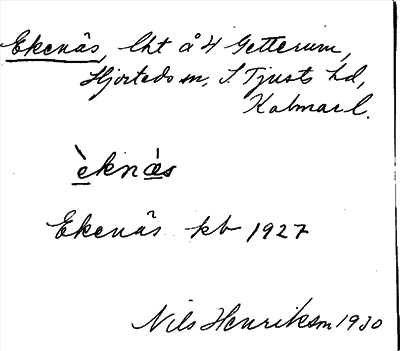 Ekenäs, lht å 4 Getterum,
Hjorteds sn, S. Tjusts hd,
Kalmar l.
èknæ̀s
Ekenäs kb 1927
Nils Henrikssn 1930